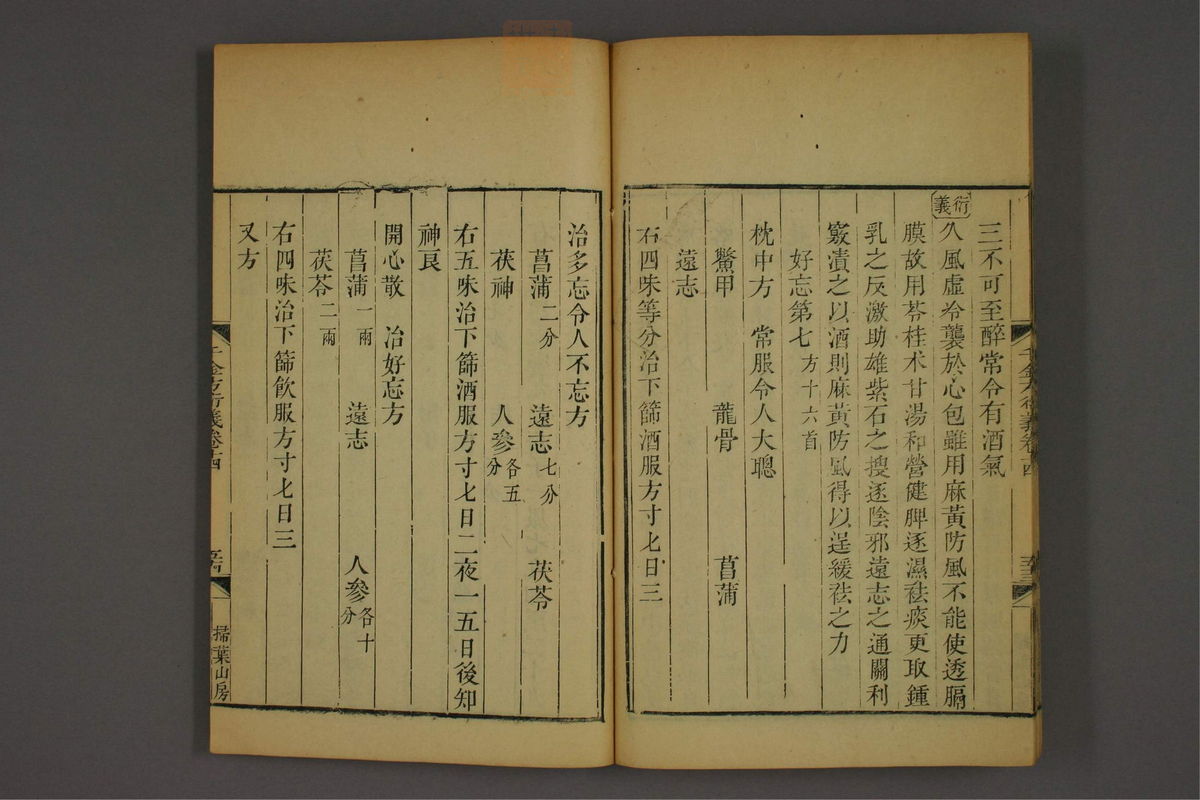 三不可至醉常令有酒氣
衍義
久風虛冷襲於心包雖用麻黃防風不能使透膈
膜故用苓桂术甘湯和營健脾逐濕祛痰更取鍾
乳之反激助雄紫石之搜逐陰邪遠志之通關利
竅漬之以酒則麻黃防風得以逞緩祛之力
好忘第七 方十六首
枕中方 常服令人大聰
鱉甲 龍骨 菖蒲
遠志
右四味等分治下篩酒服方寸匕日三
千金方衍義卷十四 五十三
治多忘令人不忘方
菖蒲二分 遠志七分 茯苓
茯神 人參各五分
右五味治下篩酒服方寸匕日二夜一五日後知
神良
開心散 治好忘方
菖蒲一兩 遠志 人參各十分
茯苓二兩
右四味治下篩飲服方寸匕日三
又方
千金方衍義卷十四 掃葉山房